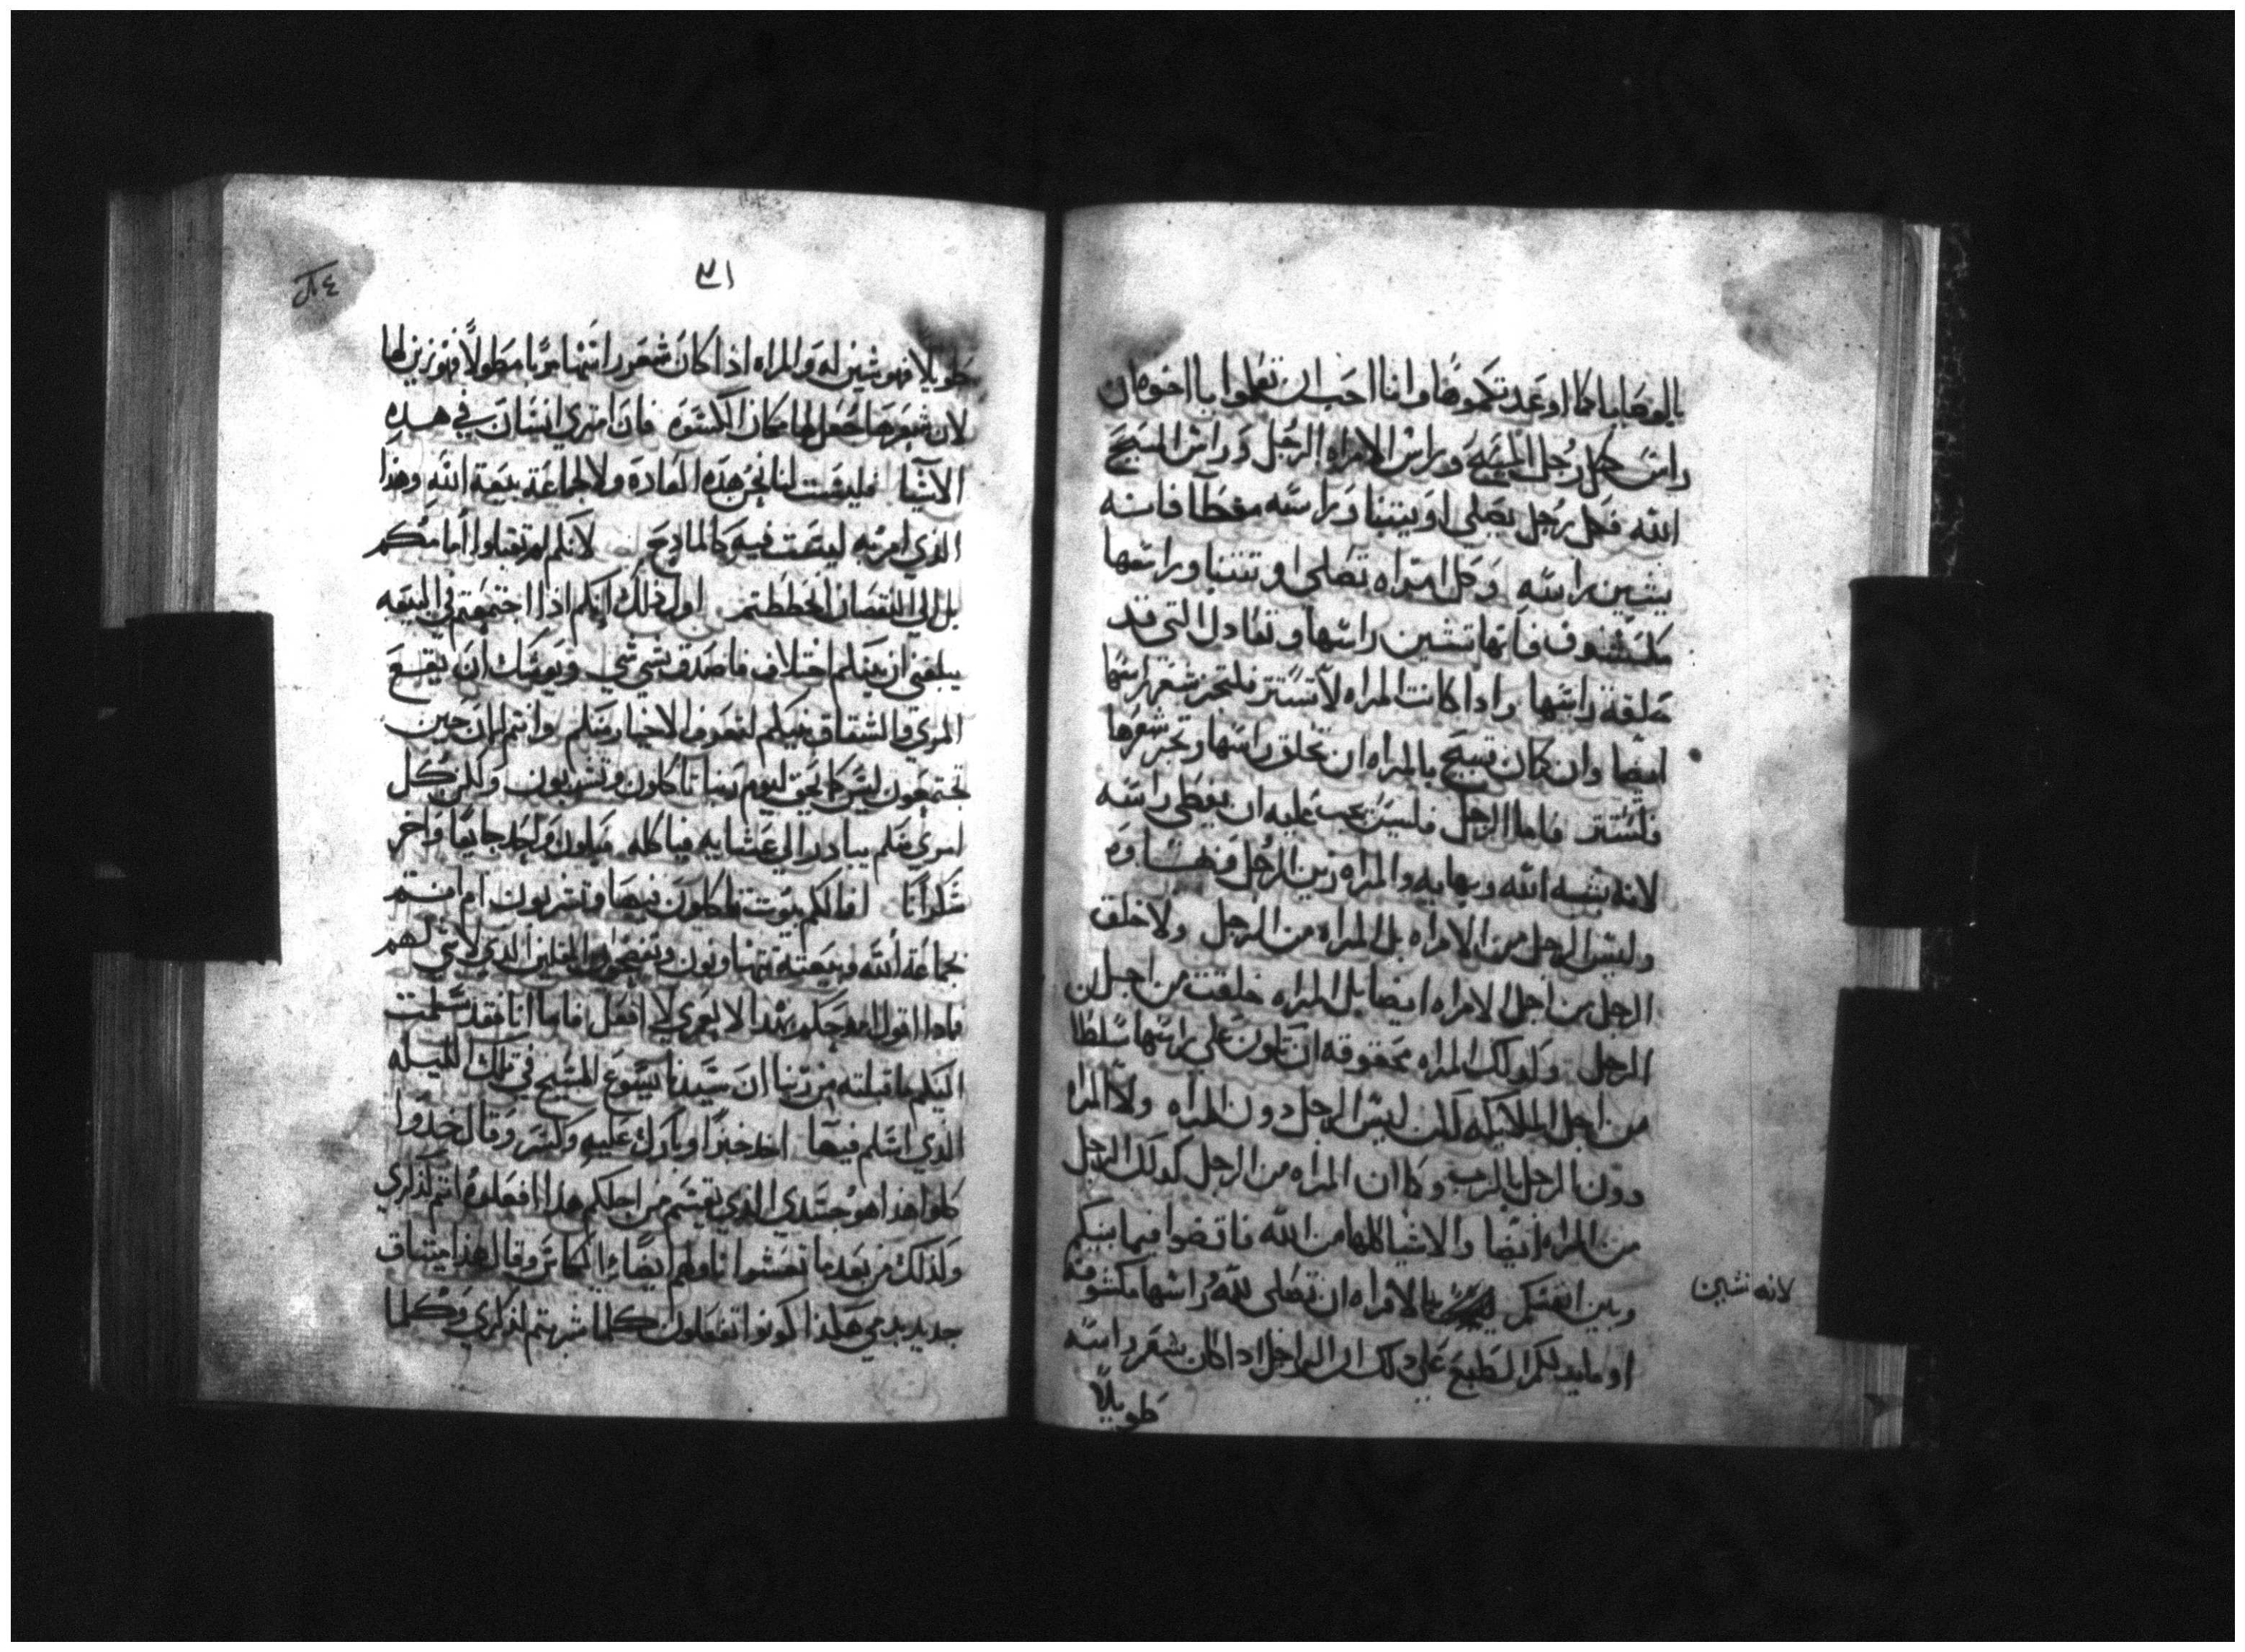 بالوصايا كما اوعدتكموها وانا احب ان تعلموا يا اخوه ان
راس كل رجل المسيح وراس الامراه الرجل وراس المسيح
الله فكل رجل يصلي او يتنبا وراسه مغطا فانه
يشين راسه وكل امراه تصلي او تتنبا وراسها
مكشوف فانها تشين راسها وتعادل التي قد
حلقة راسها واذا كانت المراه لا تستتر فلتجز شعر راسها
ايضا وان كان قبيح بالمراه ان تحلق راسها وتجز شعرها
فلتستتر فاما الرجل فليس يجب عليه ان يغطي راسه
لانه شبه الله وبهايه والمراه زين الرجل
وليس الرجل من الامراه بل المراه من الرجل ولا خلق
الرجل من اجل الامراه ايضا بل المراه خلقت من اجل
الرجل ولذلك المراه محقوقه ان تكون علي راسها سلطا
من اجل الملايكه لكن ليس الرجل دون المراه ولا المراه
دون الرجل بالرب وكما ان المراه من الرجل كذلك الرجل
من المراه ايضا والاشيا كلها من الله فاقضوا فيما بينكم
وبين انفسكم بالامراه ان تصلي لله وراسها مكشوفه
لانه تشين
او ما يدلكم الطبع علي ذلك ان الرجل اذا كان شعر راسه
طويلاً
٣١
٨٤
طويلاً فهو شين له والمراه اذا كان شعر راسها مربا مطولاً فهو زين لها
لان شعرها جعل لها مكان الكسوه فان امتري انسان في هذه
الاشيا فليست لنا نحن هذه العاده ولا لجماعة بيعة الله وهذا
الذي امر به ليست فيه كالمادح لانكم لم تقبلوا امامكم
بل الي النقصان انحططتم اول ذلك انكم اذا اجتمعتم في البيعه
يبلغني ان بينكم اختلاف فاصدق بشي شي ويوشك ان يقع
المري والشقاق فيكم لتعرف الاخيار منكم وانتم الان حين
تجتمعون ليس كما يحق ليوم ربنا تاكلون وتشربون ولكن كل
امري منكم يبادر الي عشايه فياكله فيكون واحد جايعا واخر
سكرانا افما لكم بيوت تاكلون فيها وتشربون ام انتم
بجماعة الله وبيعته تتهاونون وتفضحون المقلين الذي لا شي لهم
فماذا اقول امدحكم بهذا لا لعمري لا افعل فاما انا فقد سلمت
اليكم ما قبلته من ربنا ان سيدنا يسوع المسيح في تلك الليله
الذي اسلم فيها اخذ خبزا وبارك عليه وكسر وقال خذوا
كلوا هذا هو جسدي الذي يقسم من اجلكم هذا افعلوه انتم لذكري
وكذلك من بعد ما تعشوا ناولهم ايضا الكاس وقال هذا ميثاق
جديد بدمي هكذا كونوا تفعلون كلما شربتم لذكري وكلما